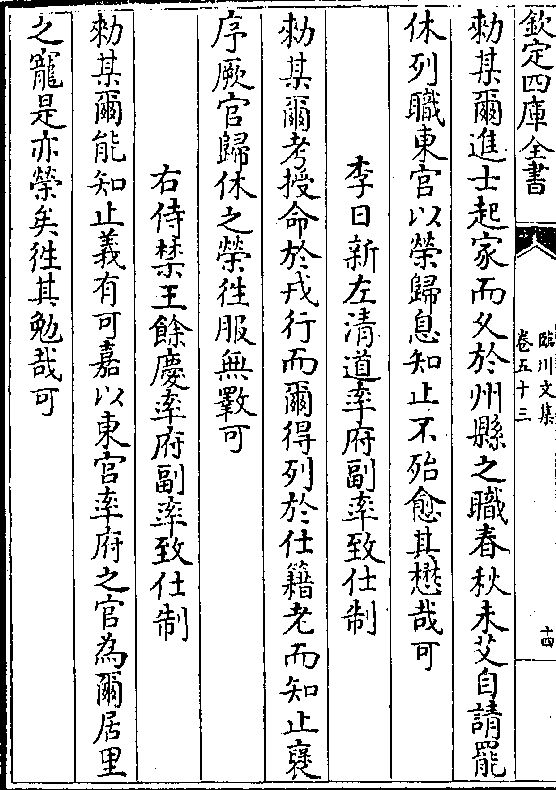 欽定四庫全書
臨川文集
卷五十三
十四
勑某爾進士起家而久於州縣之職春秋未艾自請罷
休列職東宫以榮歸息知止不殆愈其懋哉可
李日新左清道率府副率致仕制
勑某爾考授命於戎行而爾得列於仕籍老而知止襃
序厥官歸休之榮徃服無斁可
右侍禁王餘慶率府副率致仕制
勑某爾能知止義有可嘉以東宫率府之官為爾居里
之寵是亦榮矣徃其勉哉可